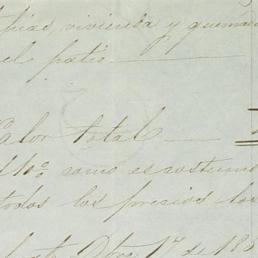 pias vivienda y quema
el patio
Valor total
como es costum
todos los precios los
Dbre. 17 de 185